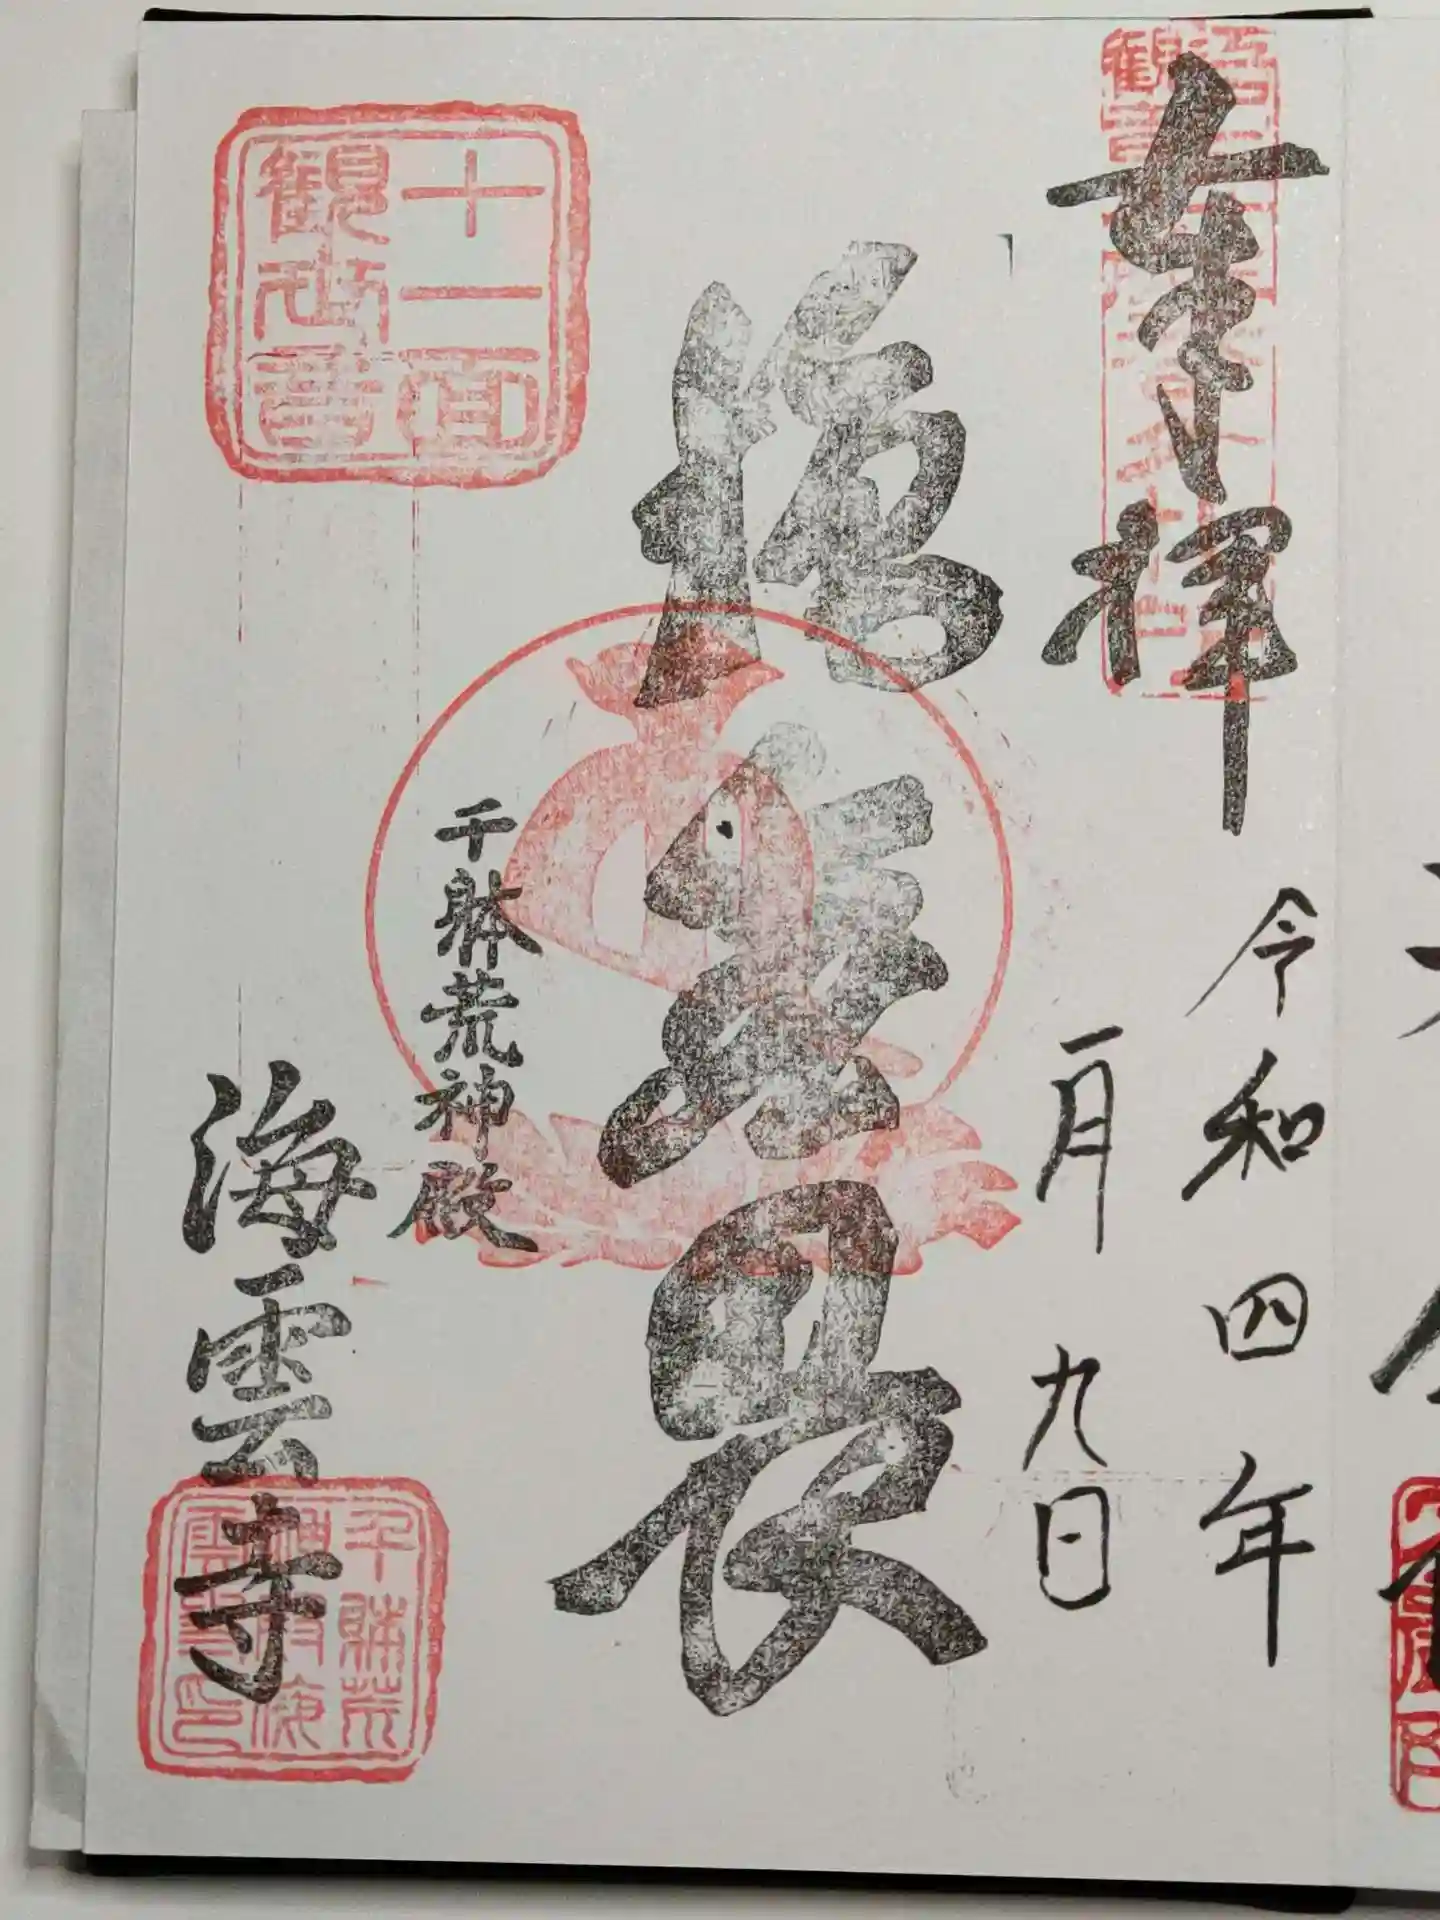 奉拝
令和四年
一月九日
施無畏
十一面
観世音
千躰荒神殿
海雲寺
千躰荒
神殿海
雲寺印